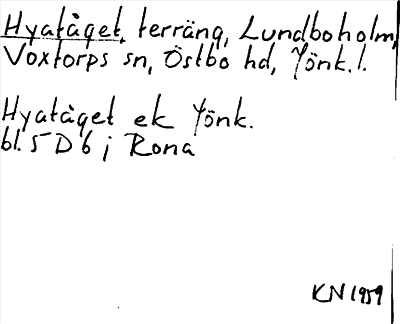 Hyatåget, terräng, Lundboholm,
Voxtorps sn, Östbo hd, Jönk.l.
Hyatåget ek Jönk.
bl. 5 D 6 j Rona
KN 1959